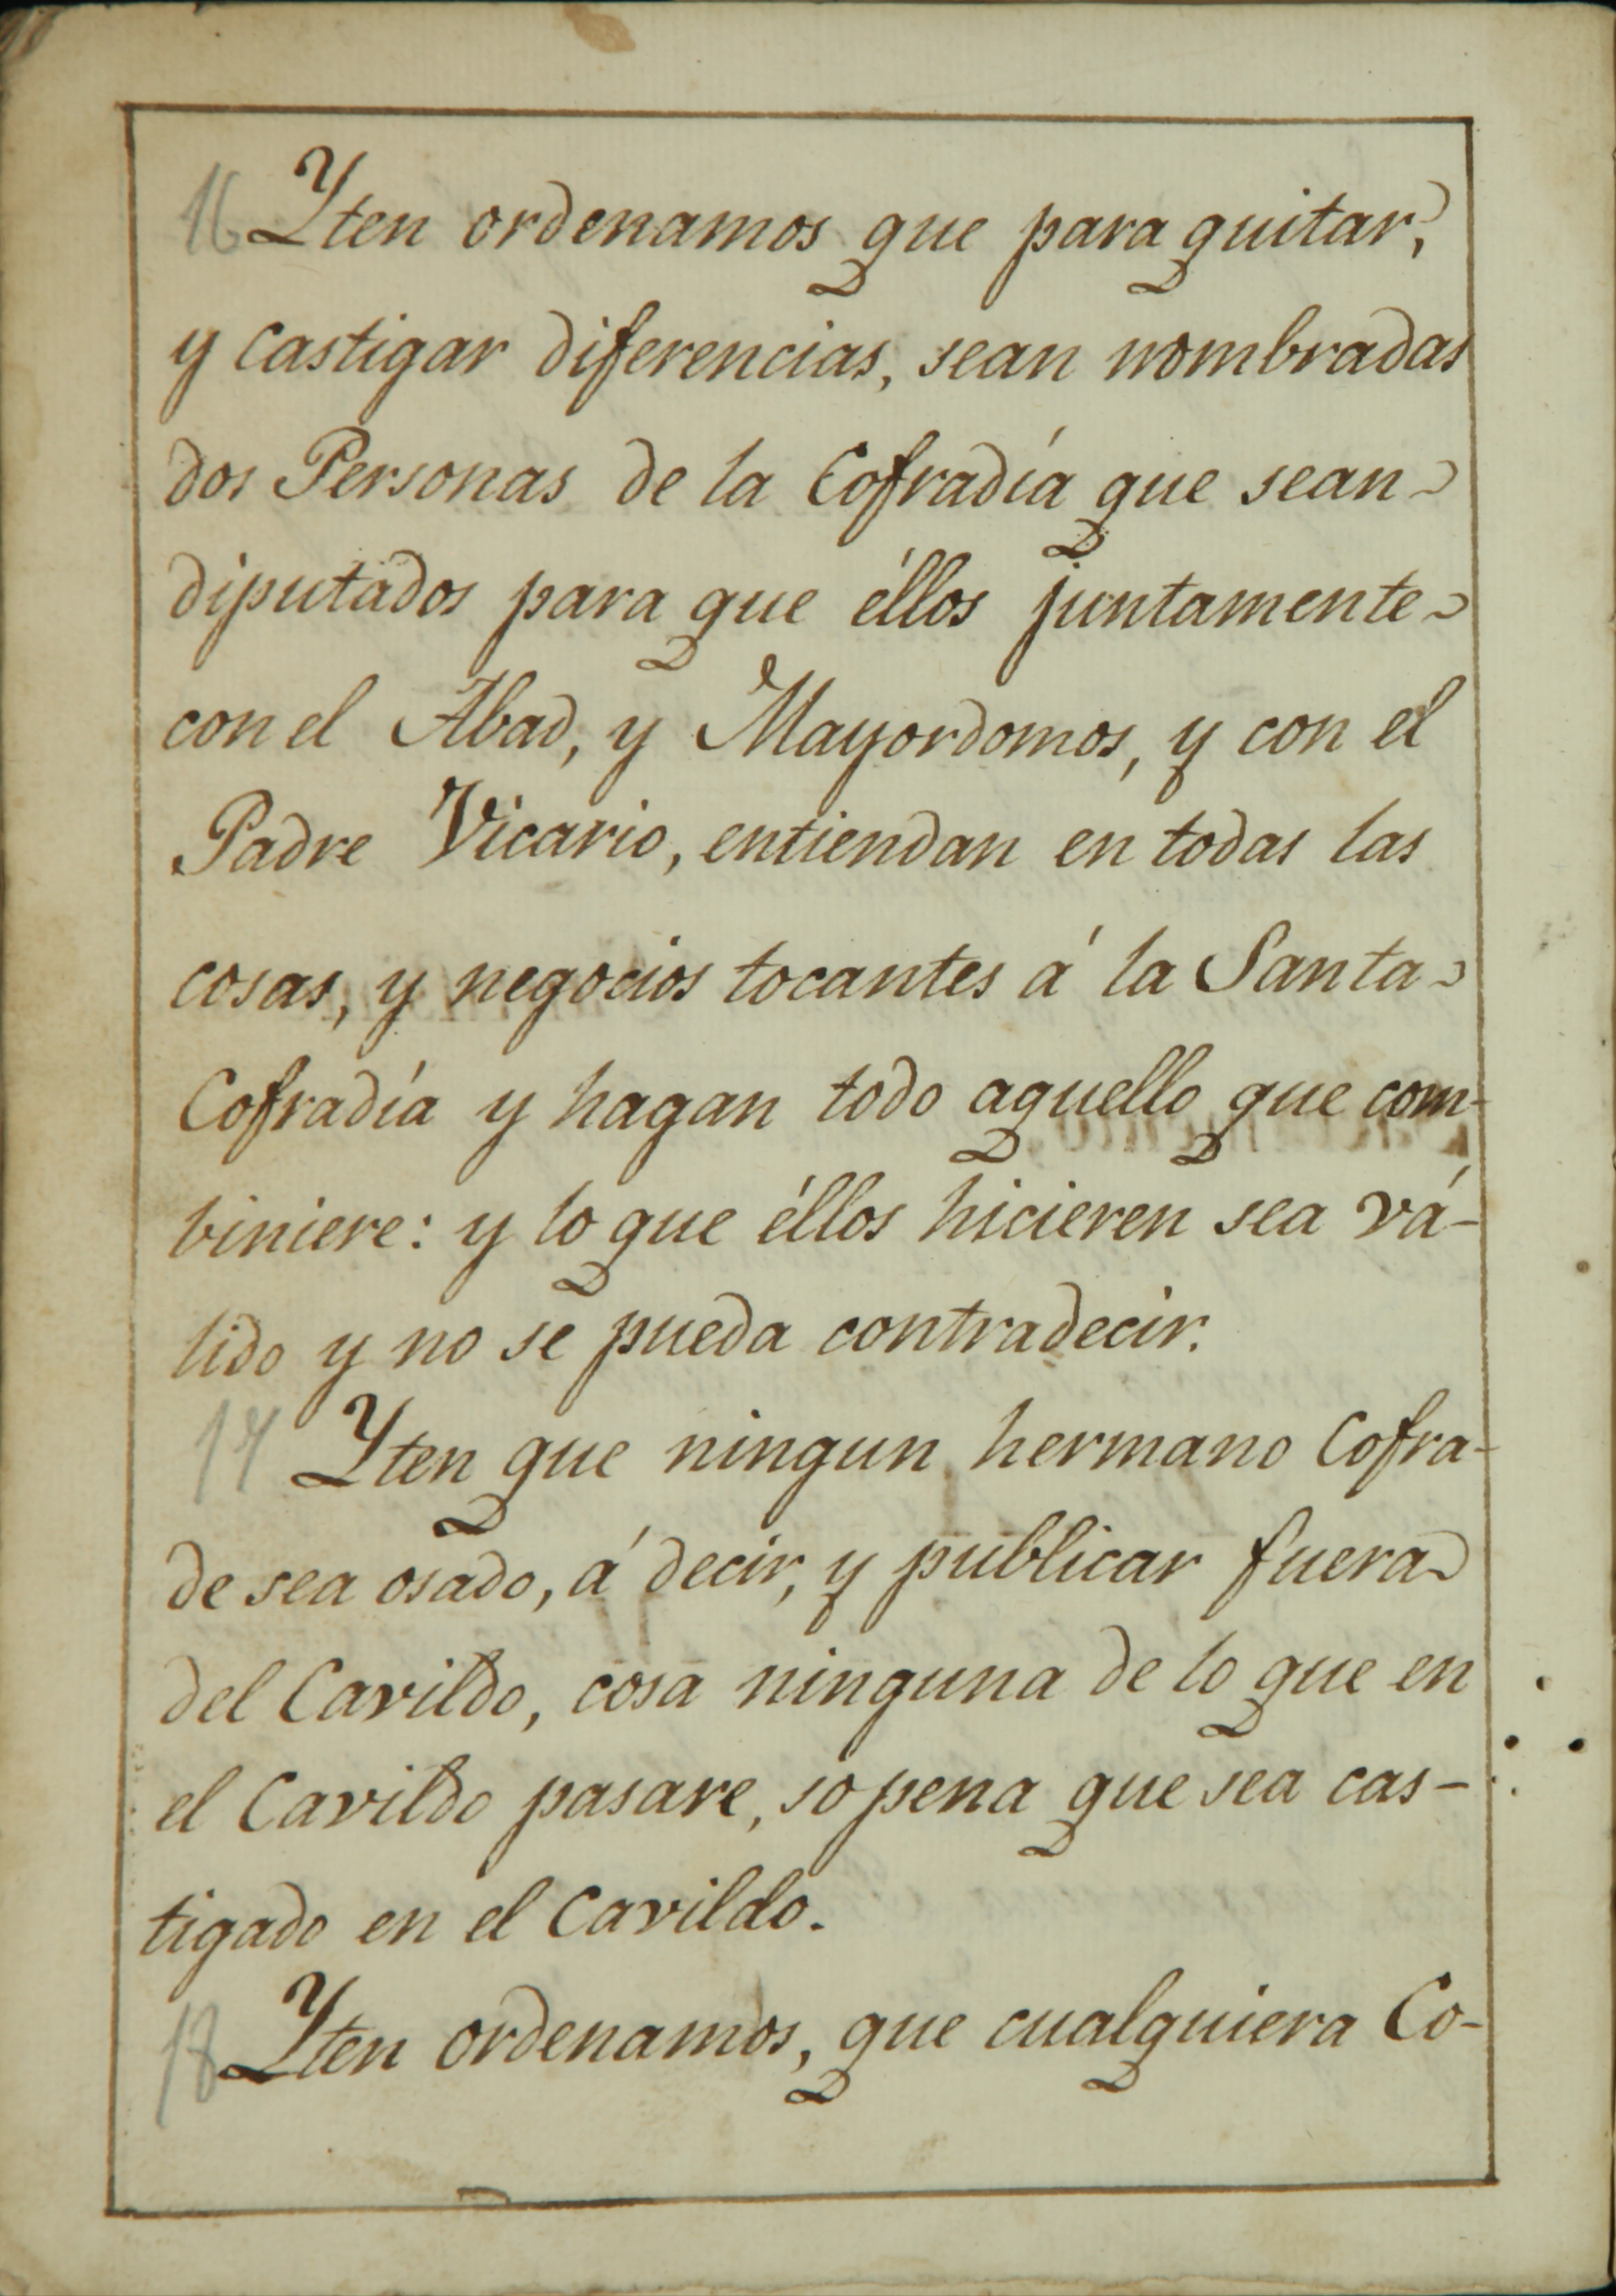 16 Yten ordenamos que para quitar,
y castigar diferencias, sean nombradas
dos Personas de la Cofradía que sean
diputados para que éllos juntamente
con el Abad, y Mayordomos, y con el
Padre Vicario, entiendan en todas las
cosas, y negocios tocantes á la Santa
Cofradía y hagan todo aquello que com-
biniere: y lo que éllos hicieren sea vá-
lido y no se pueda contradecir.
17 Yten que ningun hermano Cofra-
de sea osado, á decir, y publicar fuera
del Cavildo, cosa ninguna de lo que en
el Cavildo pasare, so pena que sea cas-
tigado en el Cavildo.
18 Yten ordenamos, que cualquiera Co-